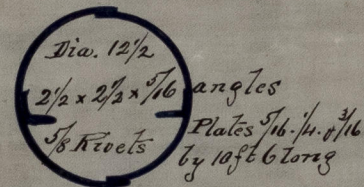 Dia. 12 1/2
2 1/2 x 2 1/2 x 5/16 angles
5/8 Rivets
Plates 5/16 . 1/4 . & 3/16
by 10 ft 6 long